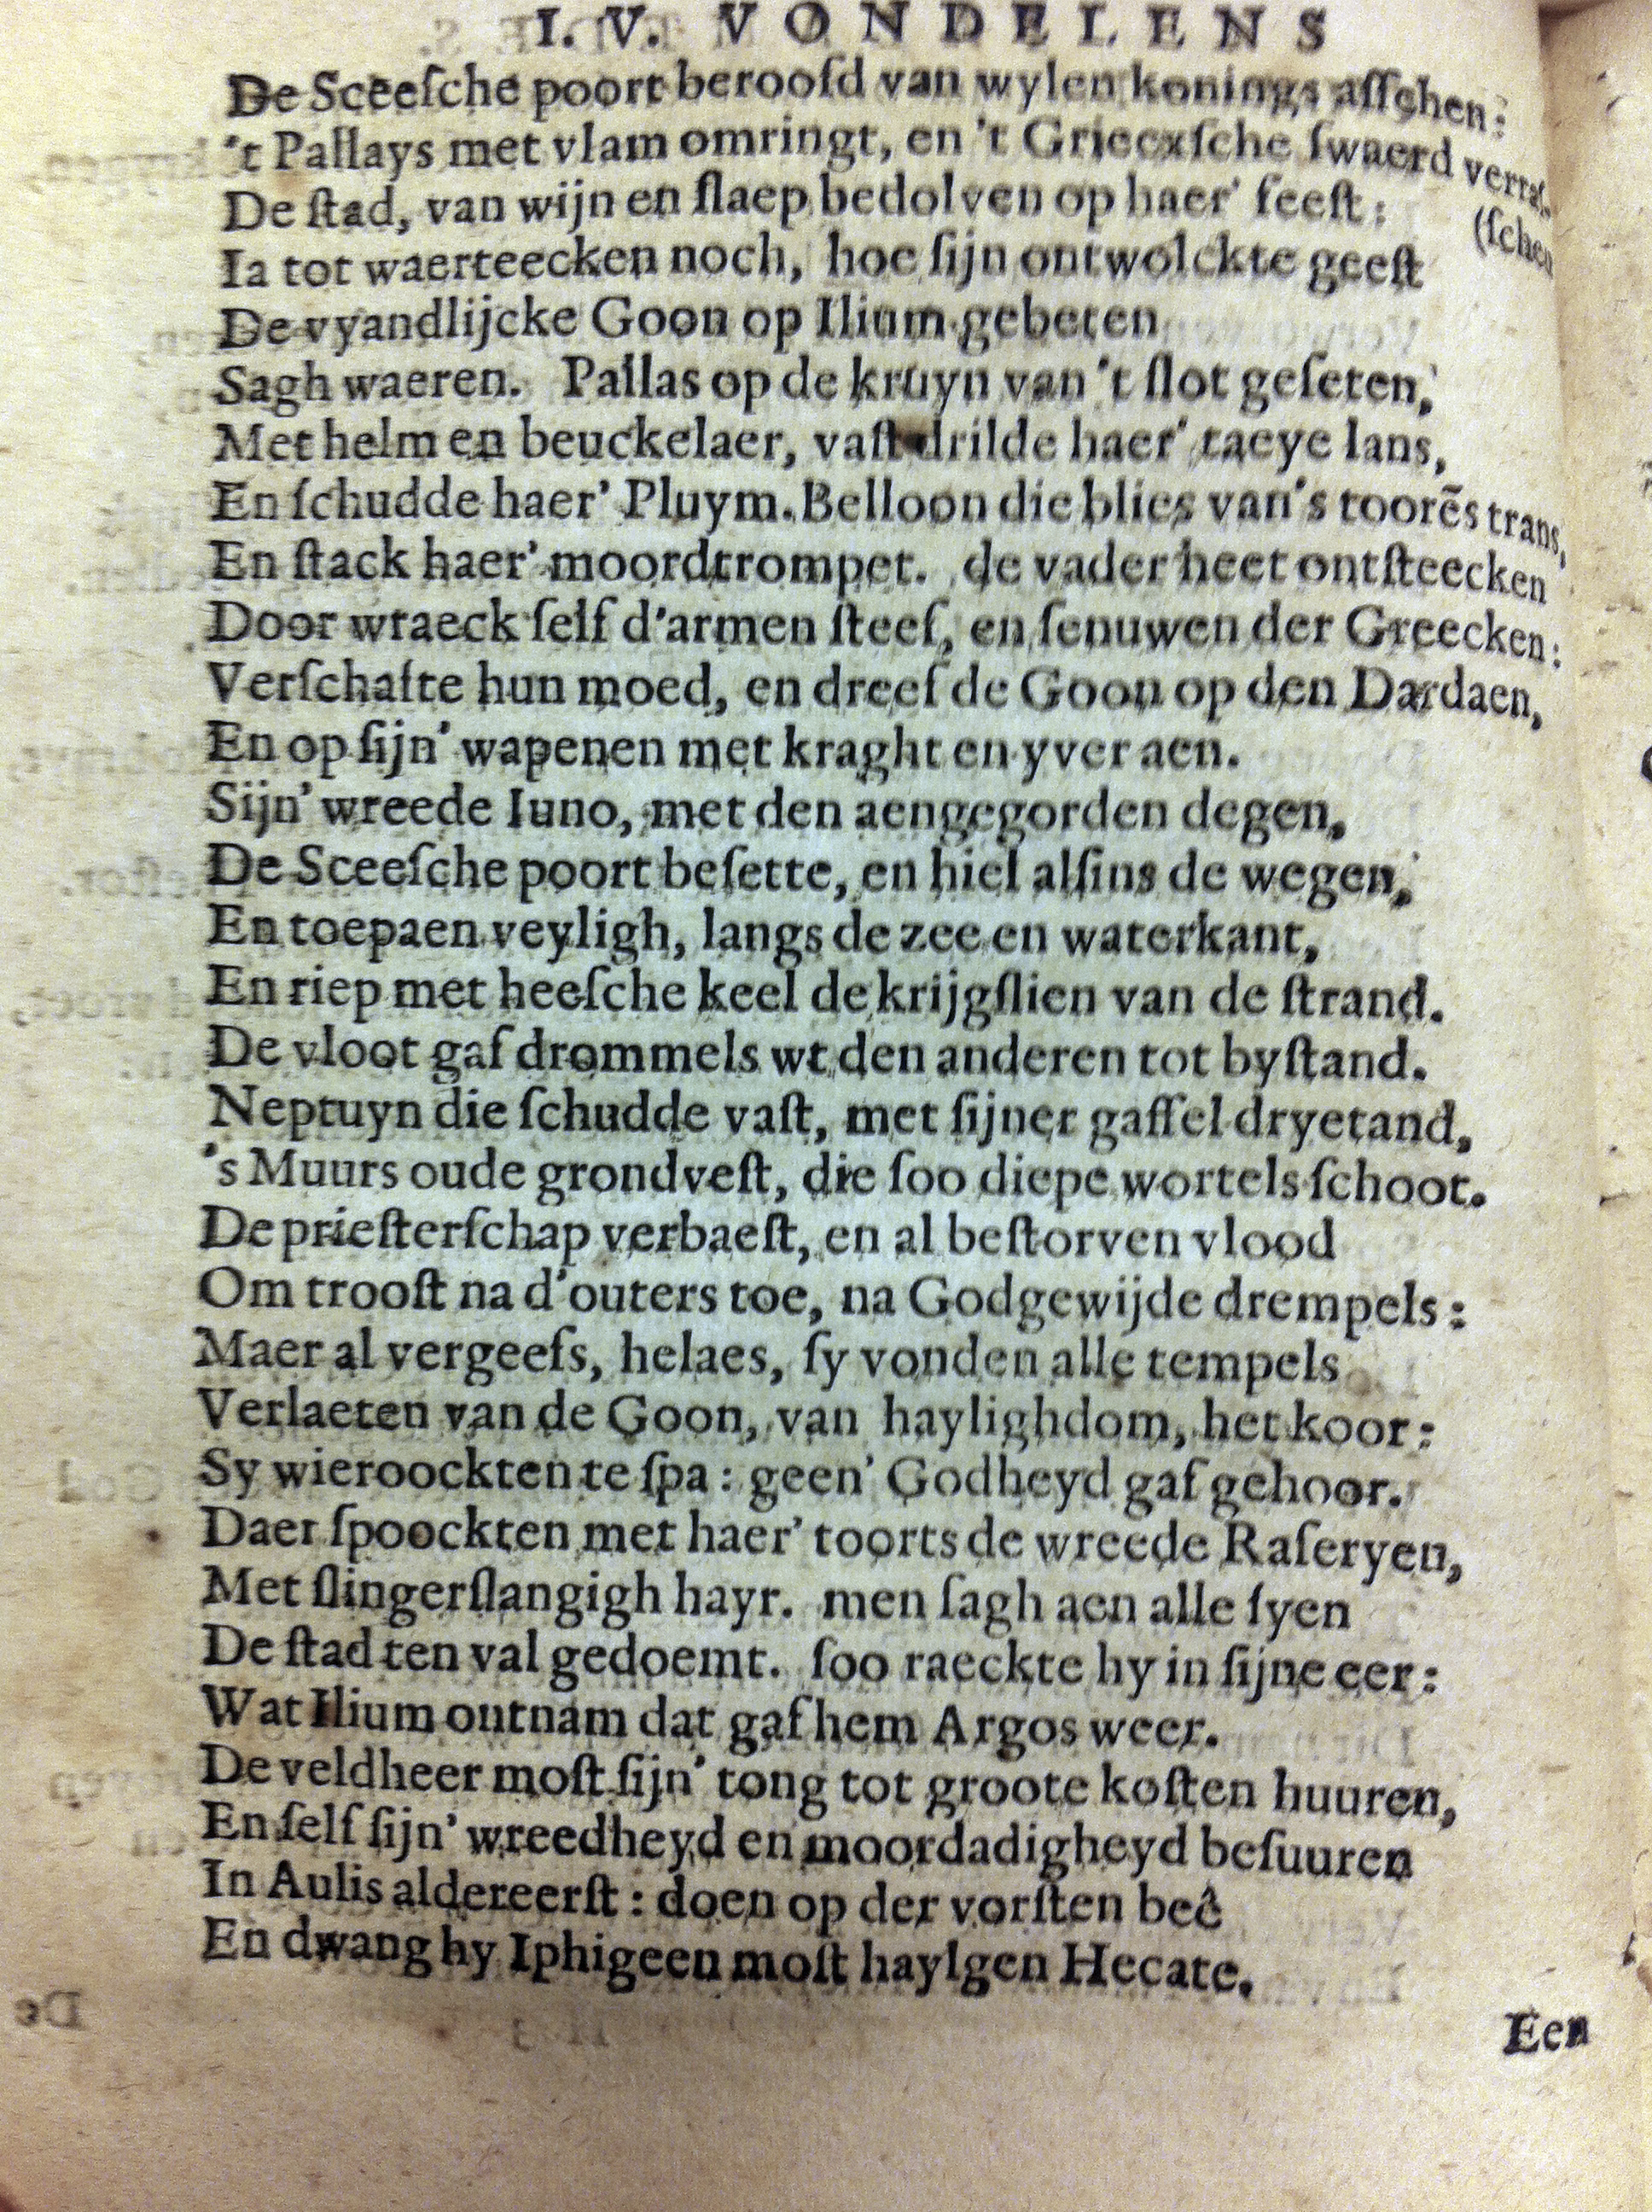 I. V. VONDELENS
De Sceeſche poort beroofd van wylen konings aſſchen:
't Pallays met vlam omringt, en 't Griecxſche ſwaerd verraſ-
(ſchen
De ſtad, van wijn en ſlaep bedolven op haer' feeſt:
Ia tot waerteecken noch, hoe ſijn ontwolckte geeſt
De vyandlijcke Goon op Ilium gebeten
Sagh waeren. Pallas op de kruyn van 't ſlot geſeten,
Met helm en beuckelaer, vaſt drilde haer' taeye lans,
En ſchudde haer' Pluym. Belloon die blies van 's toorēs trans,
En ſtack haer' moordtrompet. de vader heet ontſteecken
Door wraeck ſelf d'armen ſteef, en ſenuwen der Greecken:
Verſchafte hun moed, en dreef de Goon op den Dardaen,
En op ſijn' wapenen met kraght en yver aen.
Sijn' wreede Iuno, met den aengegorden degen,
De Sceeſche poort beſette, en hiel alſins de wegen,
En toepaen veyligh, langs de zee en waterkant,
En riep met heeſche keel de krijgſlien van de ſtrand.
De vloot gaf drommels wt den anderen tot byſtand.
Neptuyn die ſchudde vaſt, met ſijner gaffel dryetand,
's Muurs oude grondveſt, die ſoo diepe wortels ſchoot.
De prieſterſchap verbaeſt, en al beſtorven vlood
Om trooſt na d'outers toe, na Godgewijde drempels:
Maer al vergeefs, helaes, ſy vonden alle tempels
Verlaeten van de Goon, van haylighdom, het koor:
Sy wieroockten te ſpa: geen' Godheyd gaf gehoor.
Daer ſpoockten met haer' toorts de wreede Raſeryen,
Met ſlingerſlangigh hayr. men ſagh aen alle ſyen
De ſtad ten val gedoemt. ſoo raeckte hy in ſijne eer:
Wat Ilium ontnam dat gaf hem Argos weer.
De veldheer moſt ſijn' tong tot groote koſten huuren,
En ſelf ſijn' wreedheyd en moordadigheyd beſuuren
In Aulis aldereerſt: doen op der vorſten beê
En dwang hy Iphigeen moſt haylgen Hecate.
Een